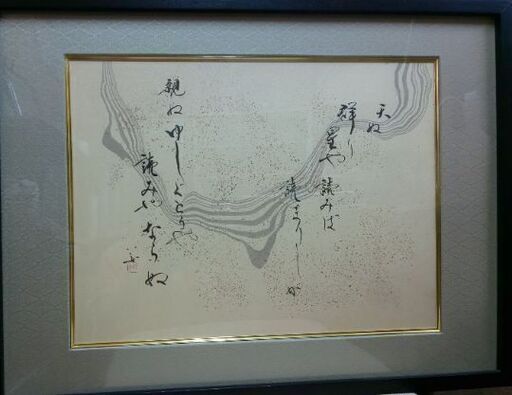 天ぬ
群り
星や 読みば
読まりしが
親ぬ ゆしぐとぅや
読みや ならぬ